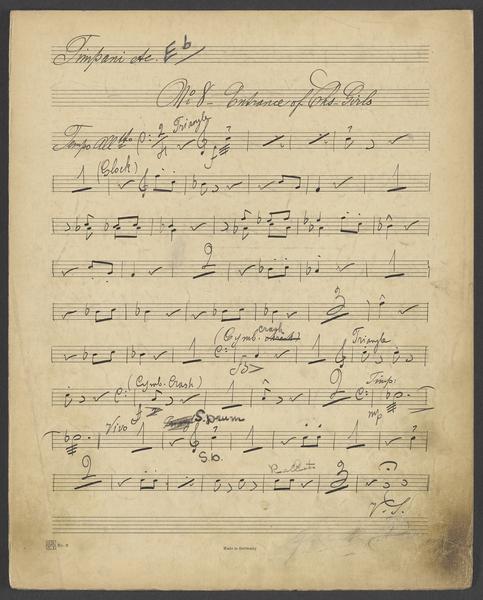 Timpani etc. Eb
No 8 - Entrance of Chs. Girls
Tempo Alltto 2 Triangle
f
1 (Glock.) 1
2 1
3
(Cymb. crash) Triangle
1 1
(Cymb. Crash) Timp:
1 2
mp
Vivo S. Drum
1 1 1
S.b.
2 3
V.S.
No. 6 Made in Germany